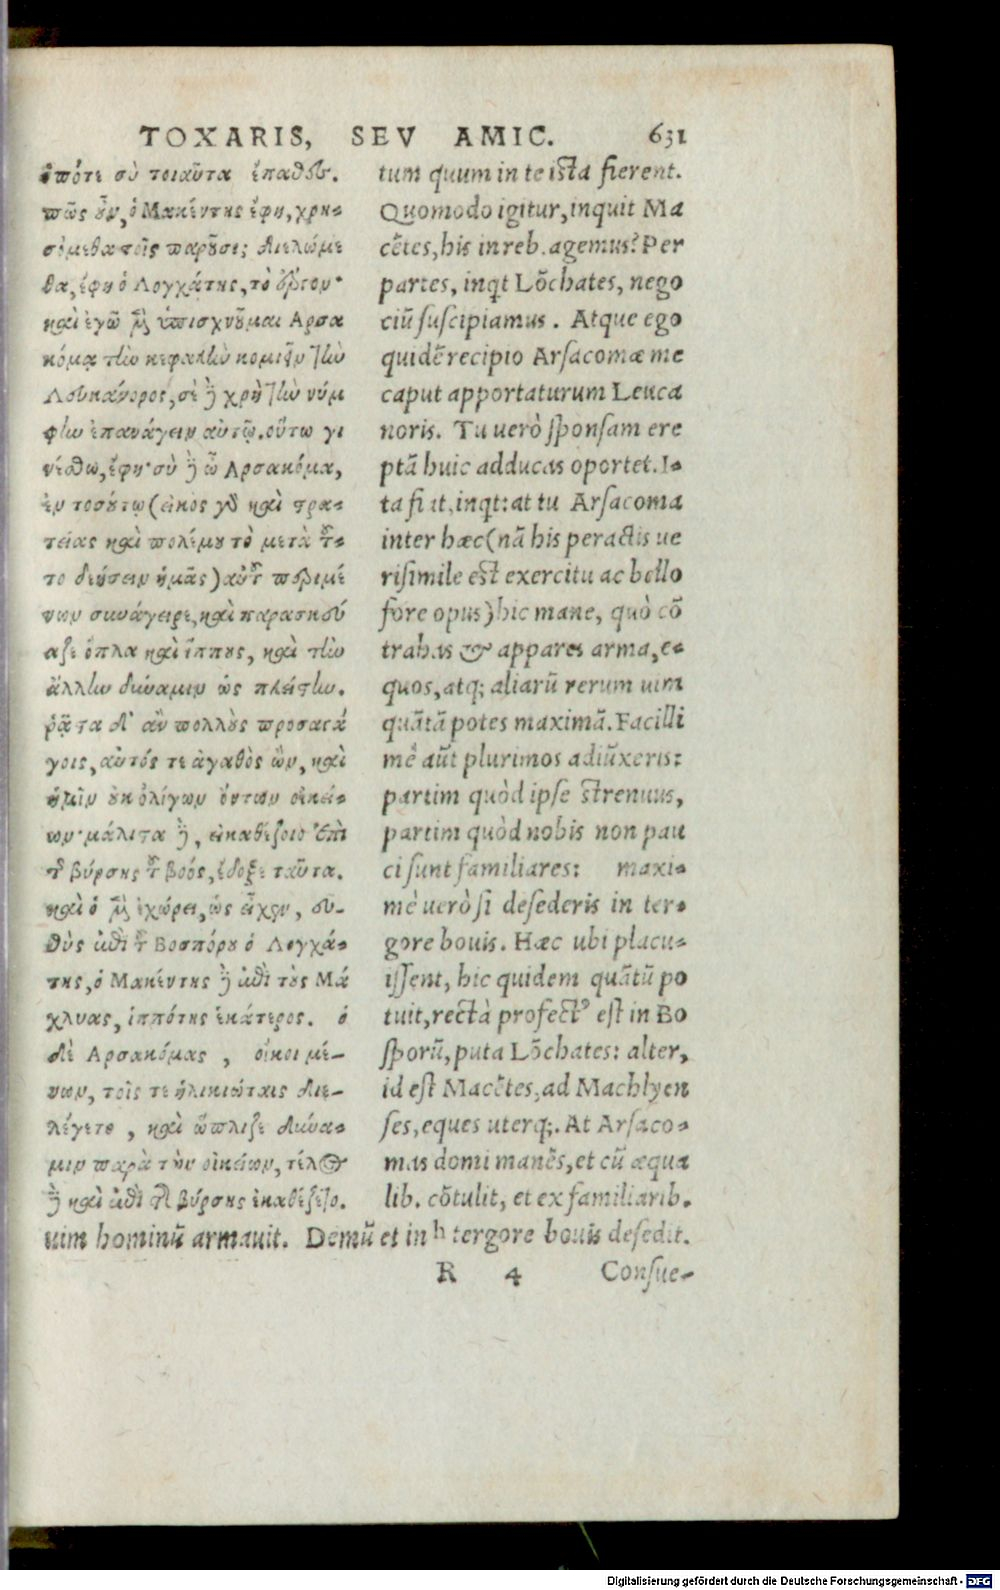 TOXARIS, SEV AMIC. 631
ὁπότε σὺ τοιαῦτα ἔπαθες.
πῶς οὖν, ὁ Μακέντης ἔφη, χρη-
σόμεθα τοῖς παροῦσι; διελώμε
θα, ἔφη ὁ Λογχάτης, τὸ ἔργον·
καὶ ἐγὼ μὲν ὑπισχνοῦμαι Αρσα
κόμᾳ τὴν κεφαλὴν κομιεῖν τὴν
Λευκάνορος, σὲ δὲ χρὴ τὴν νύμ
φην ἐπανάγειν αὐτῷ. οὕτω γι
νέσθω, ἔφη· σὺ δὲ ὦ Αρσακόμα,
ἐν τοσούτῳ (εἰκὸς γὰρ καὶ στρα-
τείας καὶ πολέμου τὸ μετὰ τοῦ-
το δεήσειν ἡμᾶς) αὐτοῦ περιμέ
νων συνάγειρε, καὶ παρασκεύ
αζε ὅπλα καὶ ἵππους, καὶ τὴν
ἄλλην δύναμιν ὡς πλείστην.
ῥᾷστα δ' ἂν πολλοὺς προσαγά
γοις, αὐτός τε ἀγαθὸς ὢν, καὶ
ἡμῖν οὐκ ὀλίγων ὄντων οἰκεί-
ων· μάλιστα δὲ, εἰ καθέζοιο ἐπὶ
τῆς βύρσης τοῦ βοός, ἔδοξε ταῦτα.
καὶ ὁ μὲν ἐχώρει, ὡς εἶχεν, εὐ-
θὺς ἐπὶ τοῦ Βοσπόρου ὁ Λογχά-
της, ὁ Μακέντης δὲ ἐπὶ τοὺς Μά
χλυας, ἱππότης ἑκάτερος. ὁ
δὲ Αρσακόμας, οἴκοι μέ-
νων, τοῖς τε ἡλικιώταις διε-
λέγετο, καὶ ὥπλιζε δύνα-
μιν παρὰ τῶν οἰκείων, τέλος
δὲ καὶ ἐπὶ τῆς βύρσης ἐκαθέζετο.
tum quum in te ista fierent.
Quomodo igitur, inquit Ma
cētes, his in reb. agemus? Per
partes, inqt Lōchates, nego
ciū suscipiamus. Atque ego
quidē recipio Arsacomæ me
caput apportaturum Leuca
noris. Tu uerò sponsam ere
ptā huic adducas oportet. I-
ta fiat, inqt: at tu Arsacoma
inter hæc (nā his peractis ue
risimile est exercitu ac bello
fore opus) hic mane, quò cō
trahas & appares arma, e-
quos, atq; aliarū rerum uim
quātā potes maximā. Facilli
mē aūt plurimos adiūxeris:
partim quòd ipse strenuus,
partim quòd nobis non pau
ci sunt familiares: maxi-
mè uerò si desederis in ter-
gore bouis. Hæc ubi placu-
issent, hic quidem quātū po
tuit, rectà profectꝰ est in Bo
sporū, puta Lōchates: alter,
id est Macētes, ad Machlyen
ses, eques uterq;. At Arsaco-
mas domi manēs, et cū æqua
lib. cōtulit, et ex familiarib.
uim hominū armauit. Demū et in h tergore bouis desedit.
R 4 Consue-
Digitalisierung gefördert durch die Deutsche Forschungsgemeinschaft - DFG